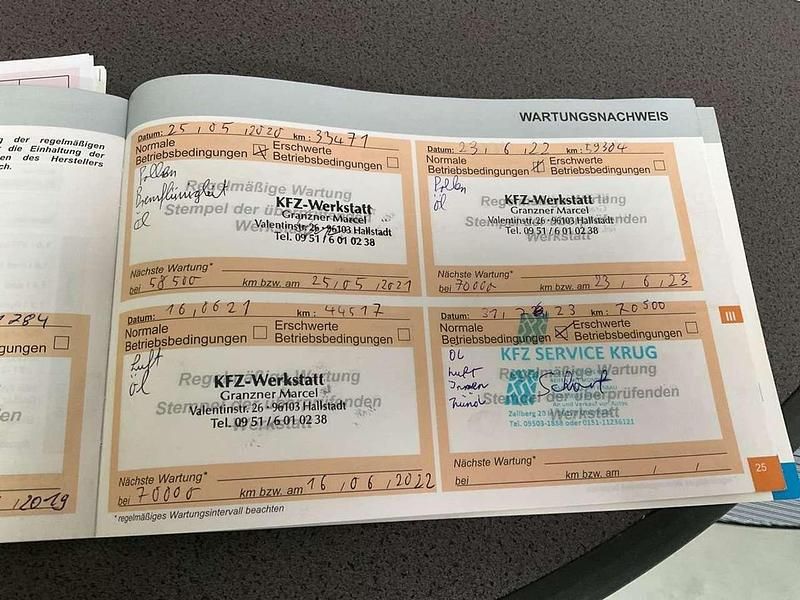 g der regelmäßigen
r die Einhaltung der
en des Herstellers
ch.
1284
ngungen
en
, 2019
WARTUNGSNACHWEIS
Datum: 25 , 05 , 2020 km : 33471
Normale
Betriebsbedingungen
Erschwerte
Betriebsbedingungen
Pollen
Bremsflüssigkeit
Öl
Regelmäßige Wartung
Stempel der
KFZ-Werkstatt
Granzner Marcel
Valentinstr. 26 · 96103 Hallstadt
Tel. 09 51 / 6 01 02 38
Nächste Wartung*
bei 58500 km bzw. am 25 , 05 , 2021
Datum: 23 , 6 , 22 km : 59304
Normale
Betriebsbedingungen
Erschwerte
Betriebsbedingungen
Pollen
Öl
KFZ-Werkstatt
Granzner Marcel
Valentinstr. 26 · 96103 Hallstadt
Tel. 09 51 / 6 01 02 38
Werkstatt
Nächste Wartung*
bei 70000 km bzw. am 23 , 6 , 23
Datum: 16 , 06 21 km : 44517
Normale
Betriebsbedingungen
Erschwerte
Betriebsbedingungen
Luft
Öl
Regelmäßige Wartung
KFZ-Werkstatt
Granzner Marcel
Stempel der überprüfenden
Valentinstr. 26 · 96103 Hallstadt
Tel. 09 51 / 6 01 02 38
Nächste Wartung*
bei 70000 km bzw. am 16 , 06 , 2022
* regelmäßiges Wartungsintervall beachten
Datum: 31, 23 km : 70500
Normale
Betriebsbedingungen
Erschwerte
Betriebsbedingungen
ÖL
Luft
Innen
Zünd
KFZ SERVICE KRUG
Stempel der überprüfenden
Werkstatt
An und Verkauf von Autos
Zeilberg 20
Tel. 09503-1858 oder 0151-11236121
Nächste Wartung*
bei km bzw. am / /
III
25